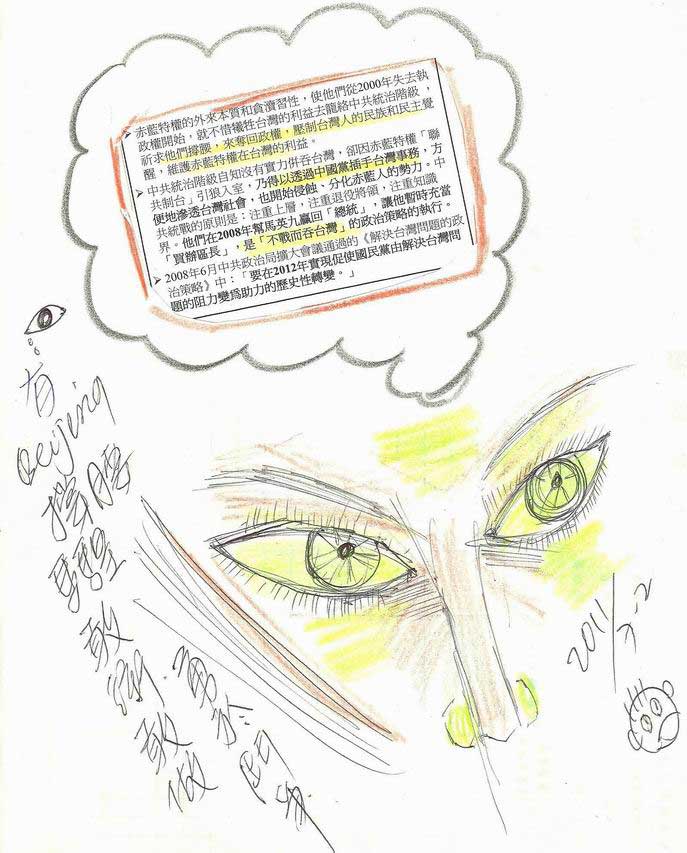 赤藍特權的外來本質和貪瀆習性，使他們從2000年失去執
政權開始，就不惜犧牲台灣的利益去籠絡中共統治階級，
祈求他們撐腰，來奪回政權，壓制台灣人的民族和民主覺
醒，維護赤藍特權在台灣的利益。
中共統治階級自知沒有實力併吞台灣，卻因赤藍特權「聯
共制台」引狼入室，乃得以透過中國黨插手台灣事務，方
便地滲透台灣社會，也開始侵蝕，分化赤藍人的勢力。中
共統戰的原則是：注重上層，注重退役將領，注重知識
界。他們在2008年幫馬英九贏回「總統」，讓他暫時充當
「買辦區長」，是「不戰而吞台灣」的政治策略的執行。
2008年6月中共政治局擴大會議通過的《解決台灣問題的政
治策略》中：「要在2012年實現促使國民黨由解決台灣問
題的阻力變爲助力的歷史性轉變。」
有
Beijing
撐腰
馬
敢
敢做
2011/